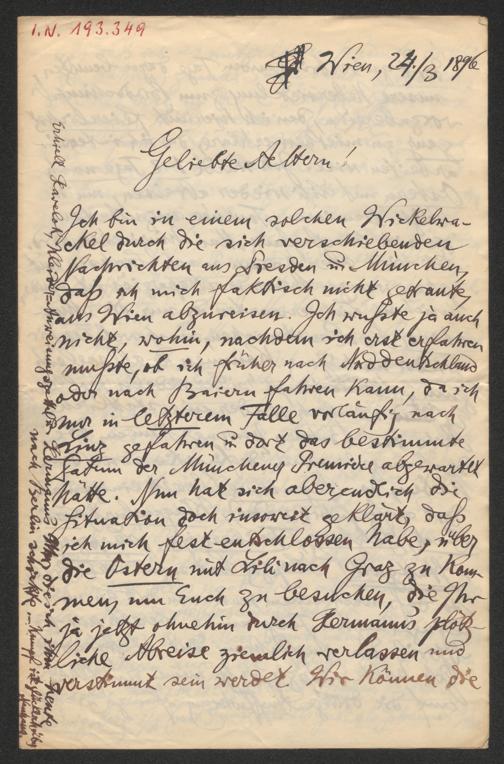 I.N. 193.349
Wien, 24./3 1896
Geliebte Aeltern!
Ich bin in einem solchen Wickelwa-
ckel durch die sich verschiebenden
Nachrichten aus Dresden u München,
daß ich mich faktisch nicht getraute,
aus Wien abzureisen. Ich wußte ja auch
nicht, wohin, nachdem ich erst erfahren
mußte, ob ich früher nach Norddeutschland
oder nach Baiern fahren kann, da ich
nur in letzterem Falle vorläufig nach
Linz gefahren u dort das bestimmte
Datum der Münchener Premiere abgewartet
hätte. Nun hat sich aber endlich die
Situation doch insoweit geklärt, daß
ich mich fest entschlossen habe, über
die Ostern mit Lili nach Graz zu kom-
men, um Euch zu besuchen, die Ihr
ja jetzt ohnehin durch Hermanns plötz-
liche Abreise ziemlich verlassen und
verstimmt sein werdet. Wir können die
nach Berlin schickte